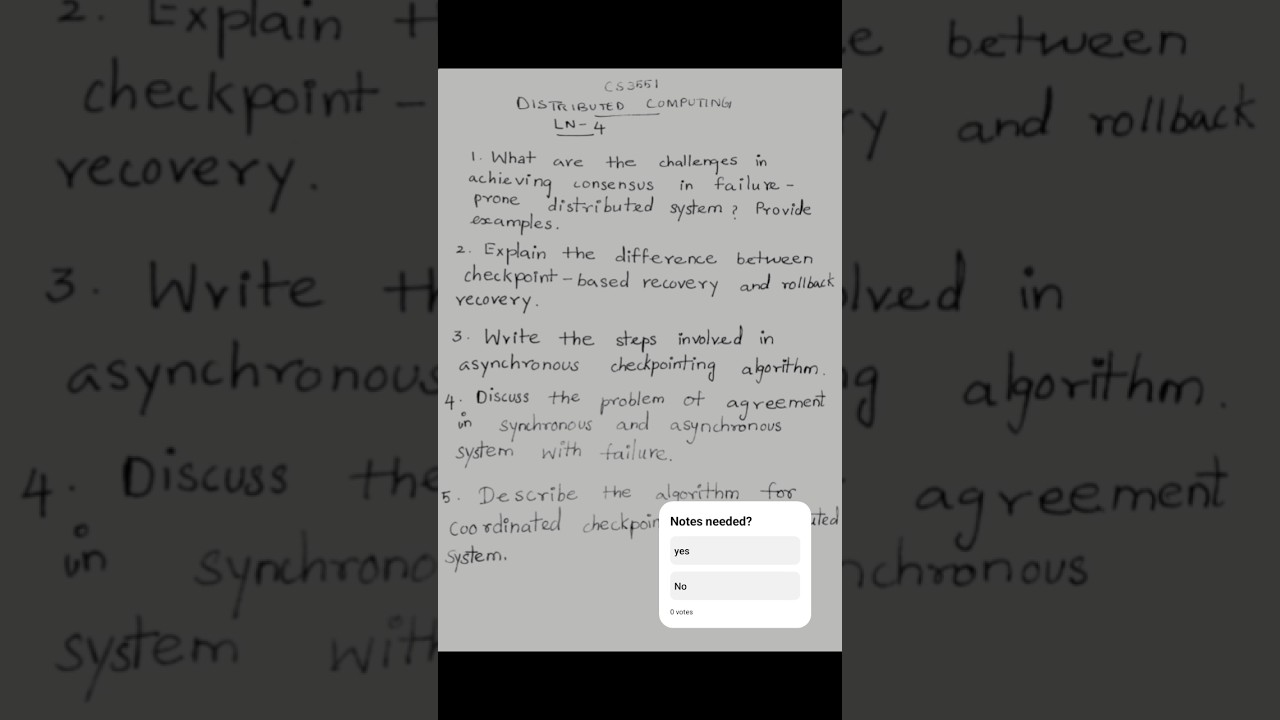 CS3551
DISTRIBUTED COMPUTING
LN-4
1. What are the challenges in
achieving consensus in failure-
prone distributed system? Provide
examples.
2. Explain the difference between
checkpoint-based recovery and rollback
recovery.
3. Write the steps involved in
asynchronous checkpointing algorithm.
4. Discuss the problem of agreement
in synchronous and asynchronous
system with failure.
5. Describe the algorithm for
coordinated
system.
Notes needed?
yes
No
0 votes